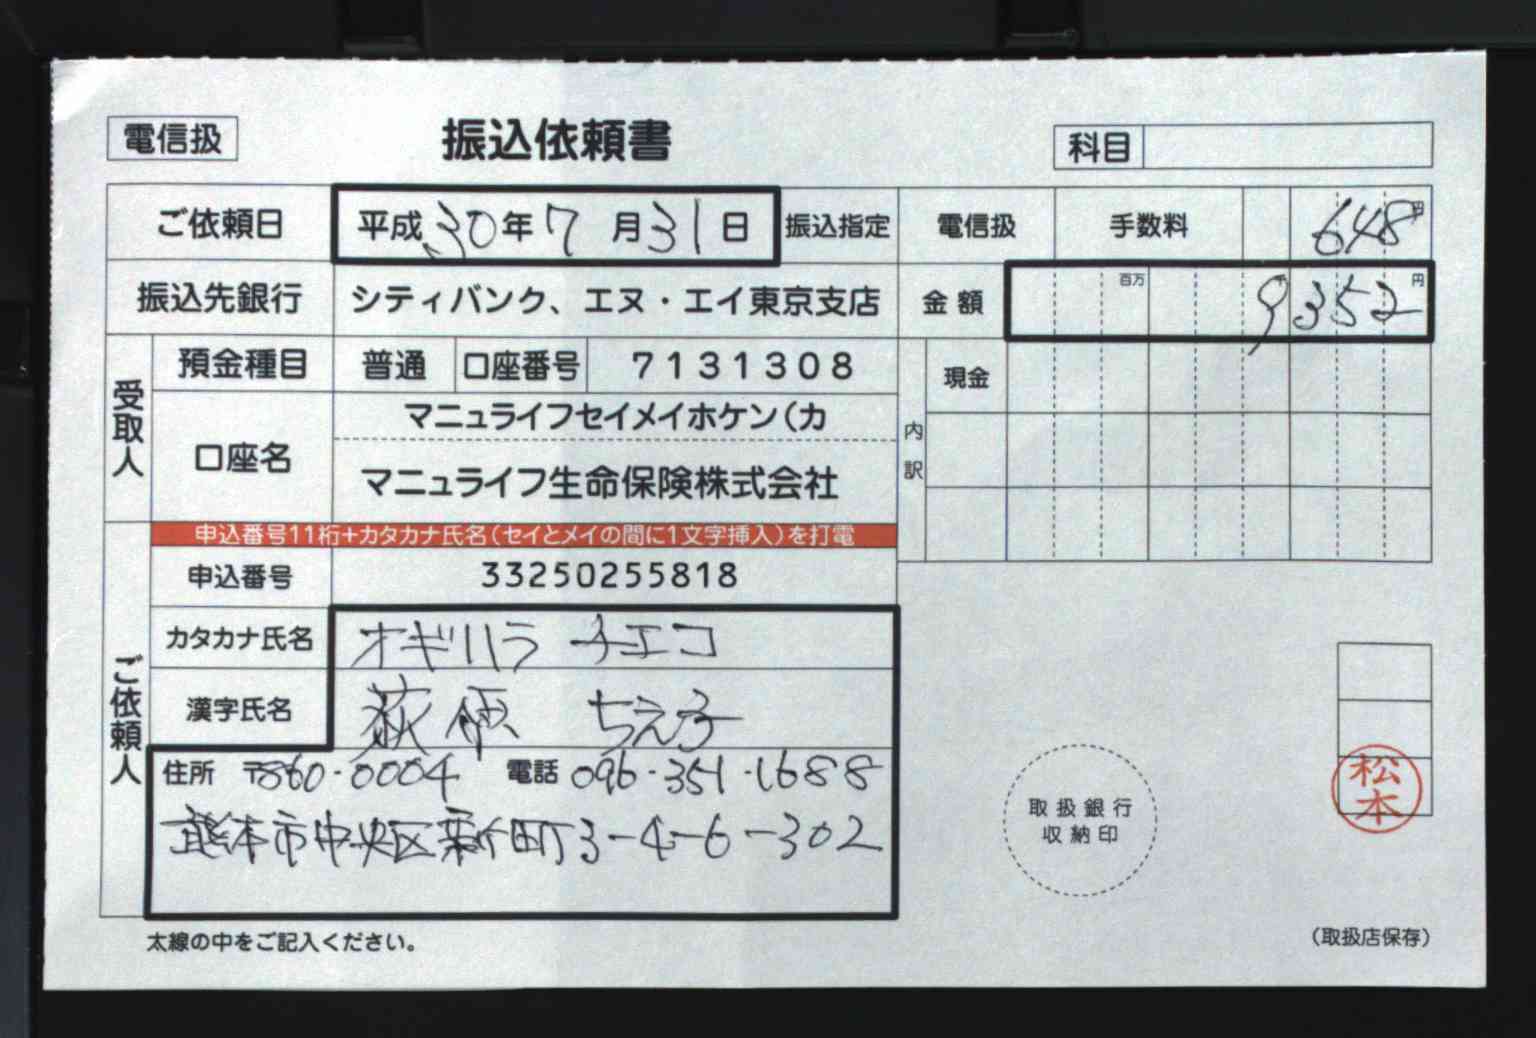 電信扱 振込依頼書 科目
ご依頼日 平成30年7月31日 振込指定 電信扱 手数料 648円
振込先銀行 シティバンク、エヌ・エイ東京支店 金額 百万 千 円 9352
受取人 預金種目 普通 口座番号 7131308 内訳 現金
口座名 マニュライフセイメイホケン(カ
マニュライフ生命保険株式会社
申込番号11桁+カタカナ氏名(セイとメイの間に1文字挿入)を打電
ご依頼人 申込番号 33250255818
カタカナ氏名 オギハラ チエコ
漢字氏名 荻原 ちえ子
住所 〒860-0004 電話 096-351-1688
熊本市中央区新町3-4-6-302
取扱銀行
収納印
松本
太線の中をご記入ください。
(取扱店保存)